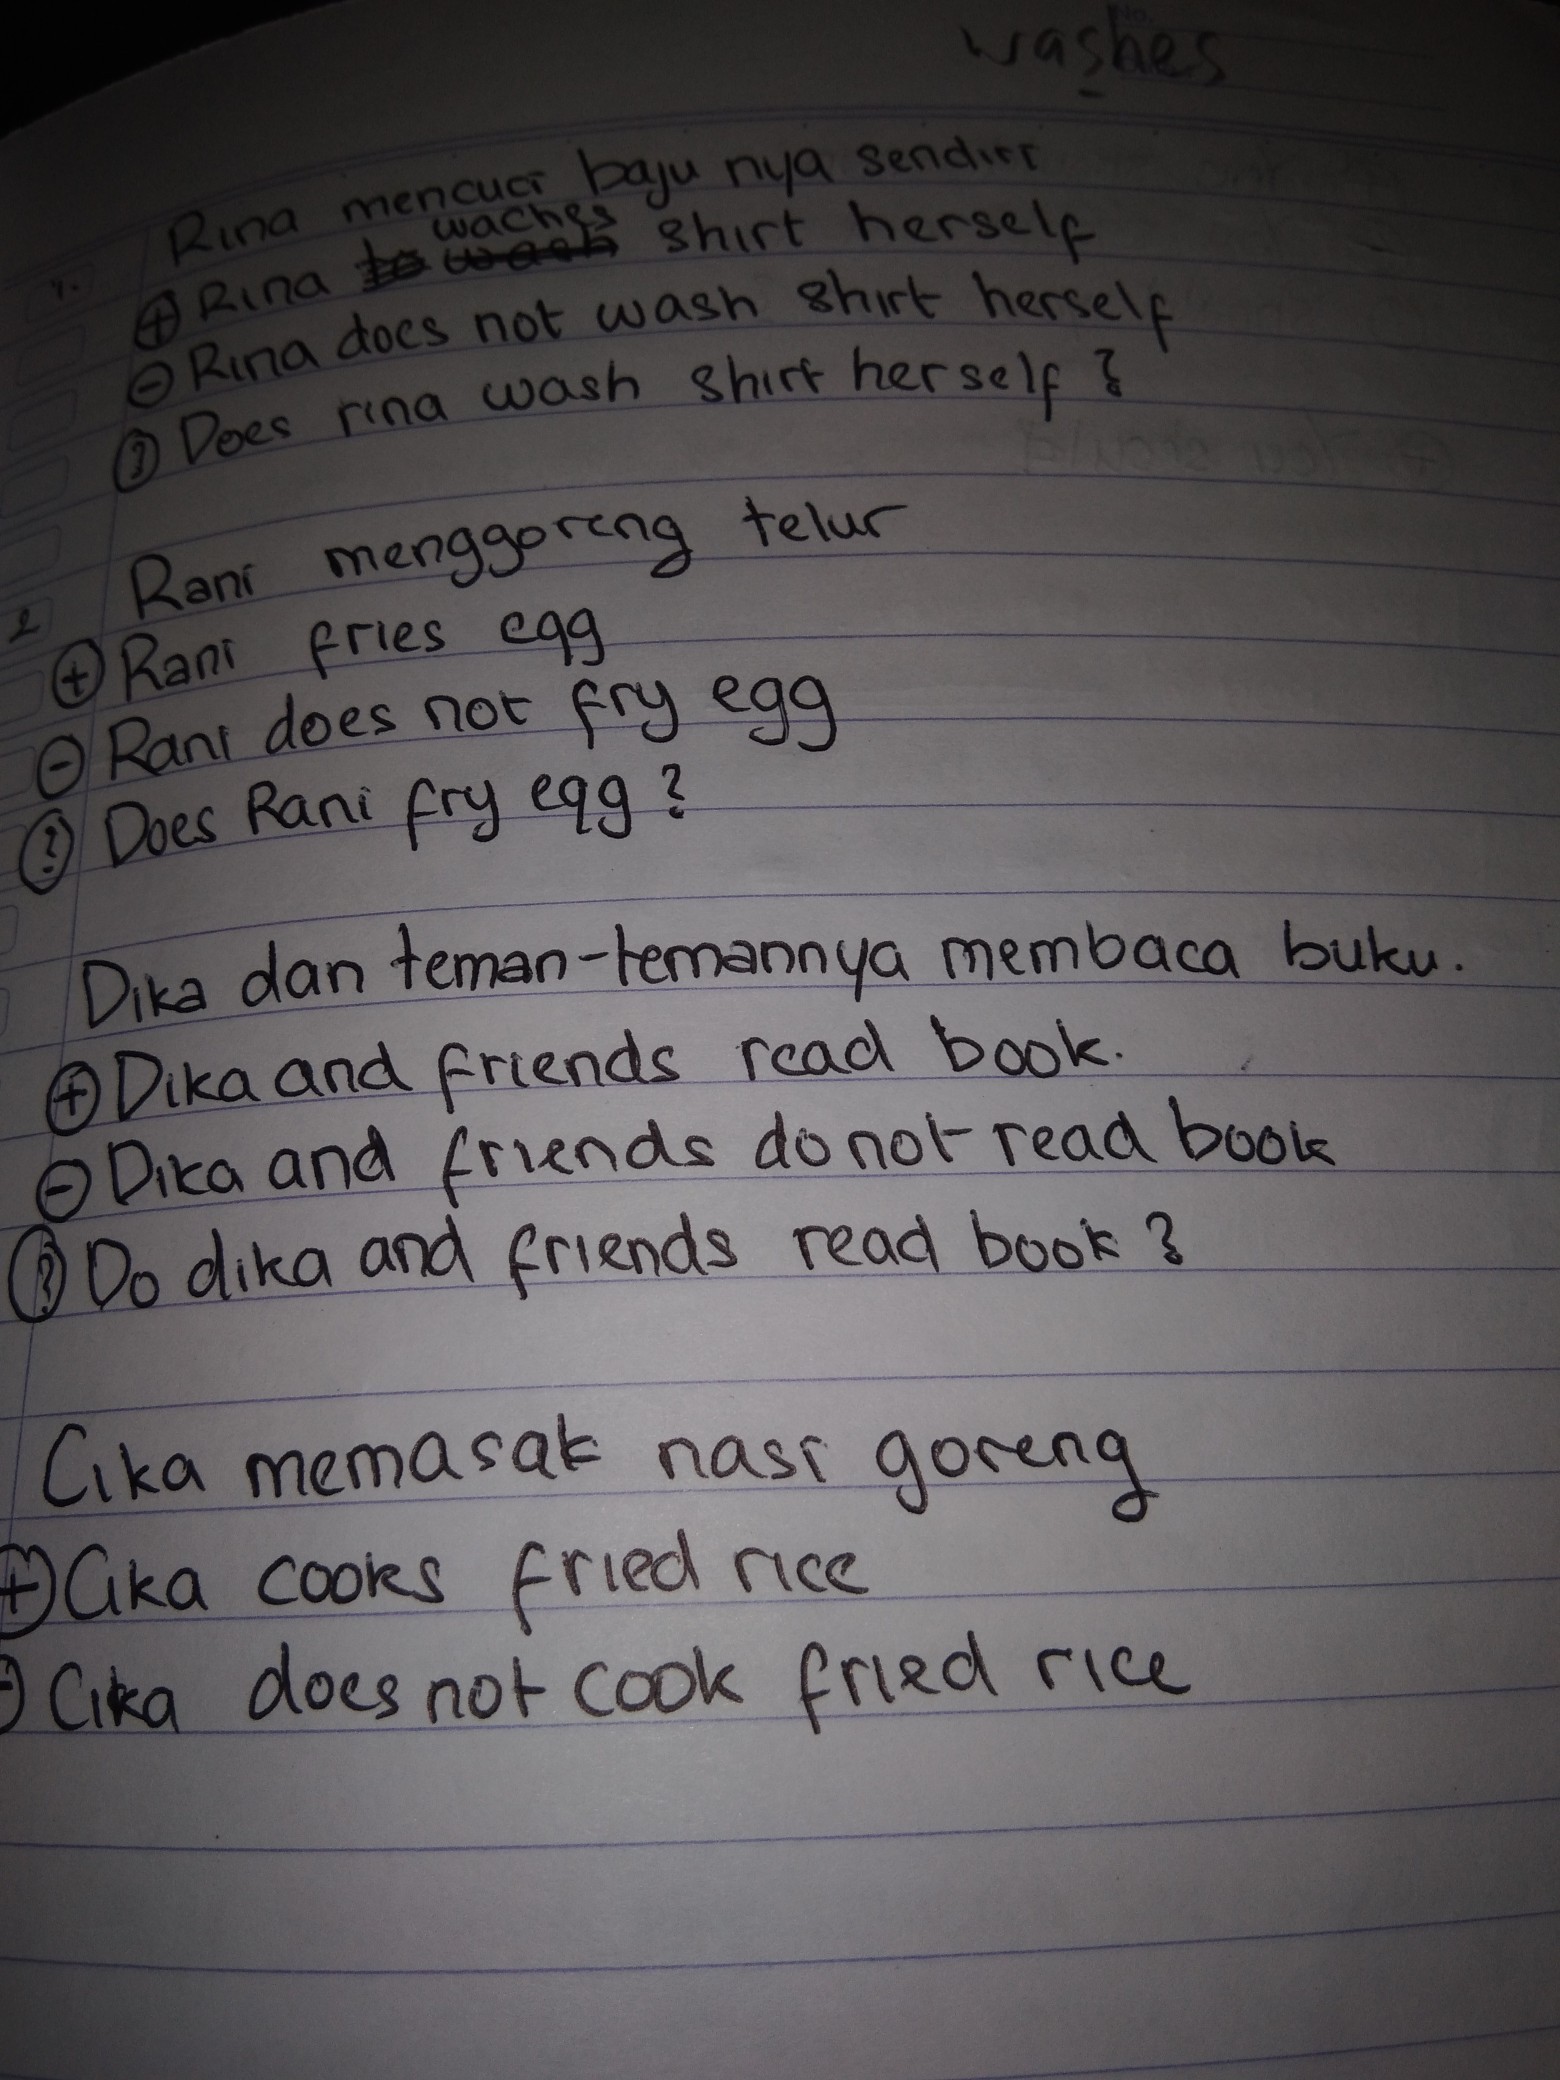 No.
washes
1. Rina mencuci baju nya sendiri
waches
⊕ Rina to wash shirt herself
⊖ Rina does not wash shirt herself
? Does rina wash shirt herself ?
2 Rani menggoreng telur
⊕ Rani fries egg
⊖ Rani does not fry egg
? Does Rani fry egg ?
Dika dan teman-temannya membaca buku.
⊕ Dika and friends read book.
⊖ Dika and friends do not read book
? Do dika and friends read book ?
Cika memasak nasi goreng
⊕ Cika cooks fried rice
⊖ Cika does not cook fried rice